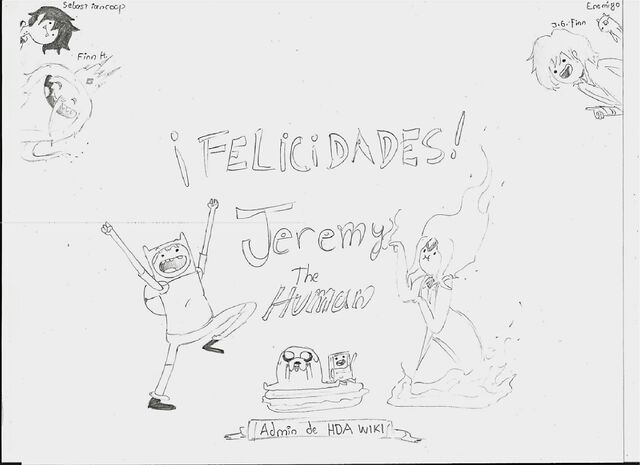 Sebastiancoop
Enemigo
J.G.Finn
Finn H.
¡FELICIDADES!
Jeremy
The
Human
Admin de HDA WIKI